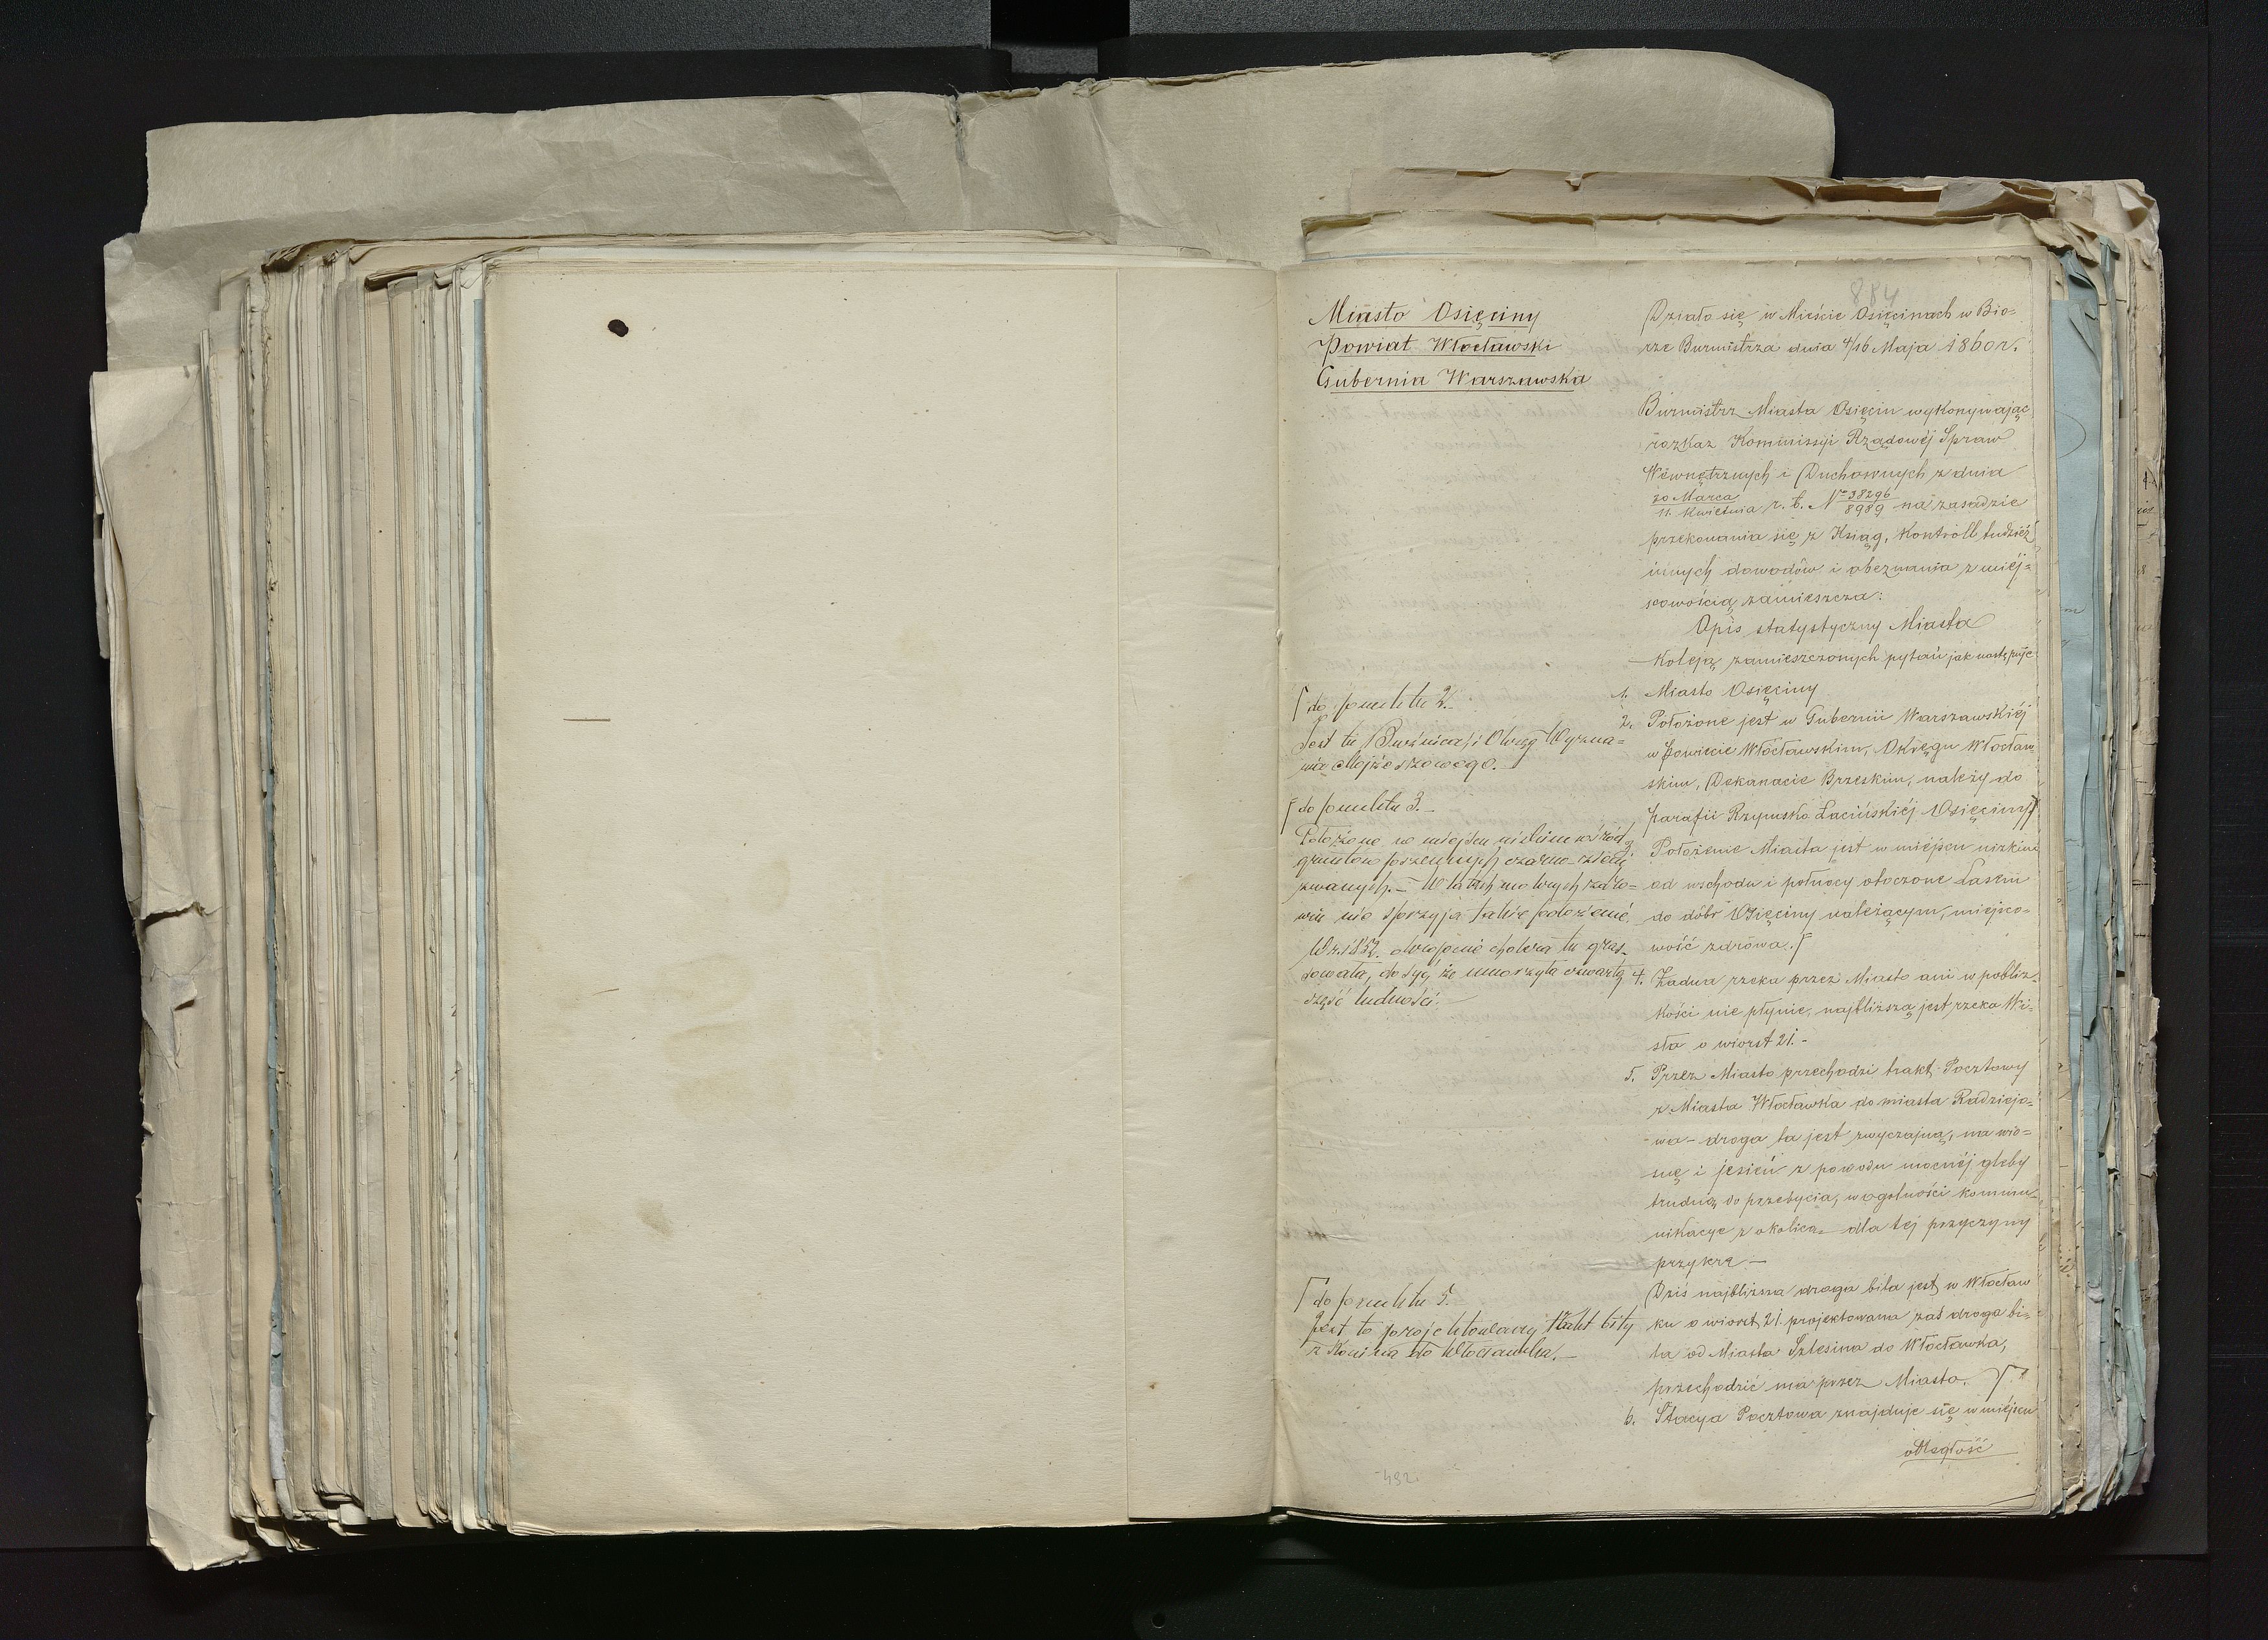 884
Miasto Osięciny
Powiat Włocławski
Gubernia Warszawska
Działo się w Mieście Osięcinach w Bió-
rze Burmistrza dnia 4/16 Maja 1860 r.
Burmistrz Miasta Osięcin wykonywając
rozkaz Kommissyi Rządowéj Spraw
Wewnętrznych i Duchownych z dnia
30 Marca / 11 Kwietnia r. b. No 38296/8989 na zasadzie
przekonania się z Ksiąg, Kontroll tudzież
innych dowodów i obeznania z miéj-
scowością zamieszcza:
Opis statystyczny Miasta
Koleją zamieszczonych pytań jak następuje
1. Miasto Osięciny
2. Położone jest w Gubernii Warszawskiéj
w Powiecie Włocławskim, Okręgu Włocław-
skim, Dekanacie Brzeskim, należy do
parafii Rzymsko Łacińskiéj Osięciny
Położenie Miasta jest w miejscu nizkim
od wschodu i północy otoczone Lasem
do dóbr Osięciny należącym, miejsco-
wość zdrowa.
4. Żadna rzeka przez Miasto ani w pobliz-
kości nie płynie, najbliższą jest rzeka Wi-
sła o wiorst 21.-
5. Przez Miasto przechodzi trakt Pocztowy
z Miasta Włocławka do miasta Radziejo-
wa - droga ta jest zwyczajną, na wio-
snę i jesień z powodu mocnéj gleby
trudną do przebycia, w ogólności kommu-
nikacye z okolicą - dla téj przyczyny
przykre -
Dziś najbliższa droga bita jest w Włocław
ku o wiorst 21 projektowana zaś droga bi-
ta od Miasta Szlesina do Włocławka,
przechodzić ma przez Miasto.
6. Stacya Pocztowa znajduje się w miéjscu
odległość
do punktu 2.
Jest tu Bużnica i Okrąg Wyzna-
nia Mojżeszowego.
do punktu 3.
Położone w miejscu nizkim wśród
gruntów pszennych czarno-ziem
zwanych. - W latach mokrych
nie sprzyja takie położenie.
W r. 1852. okropnie cholera tu gras-
sowała, dosyć że umorzyła czwartą
część ludności. -
do punktu 5.
Jest to projektowany trakt bity
z Konina do Włocławka. -
492.